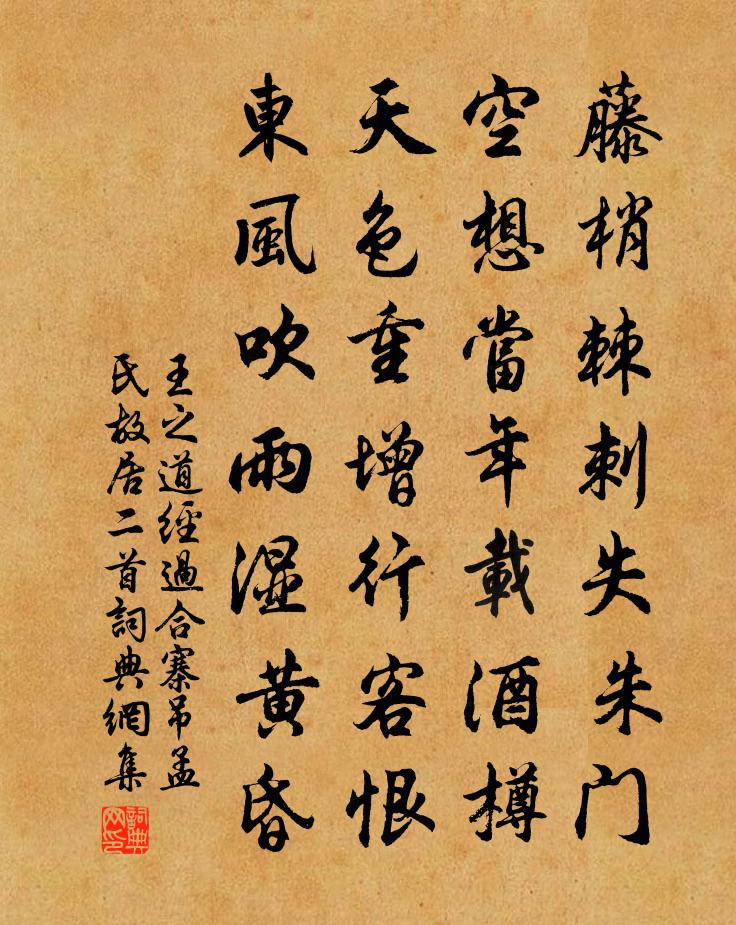 藤梢棘刺失朱门
空想當年載酒樽
天色重增行客恨
東風吹雨湿黄昏
王之道經過合寨吊孟
氏故居二首詞典網集
詞典
网印